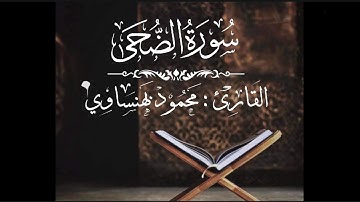 سُورَةُ الضُّحَى
القَارِئ : مَحْمُود بَهنسَاوِي